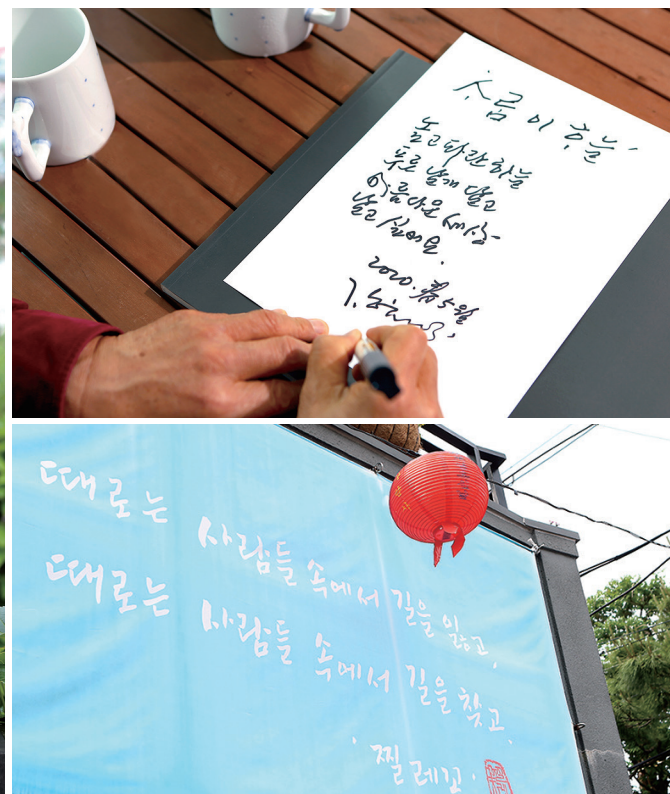 사람이 하늘
높고 파란 하늘
푸른 날개 달고
아름다운 세상
날고 싶어요.
2020. 봄 5월
때로는 사람들 속에서 길을 잃고,
때로는 사람들 속에서 길을 찾고,
찔레꼬.